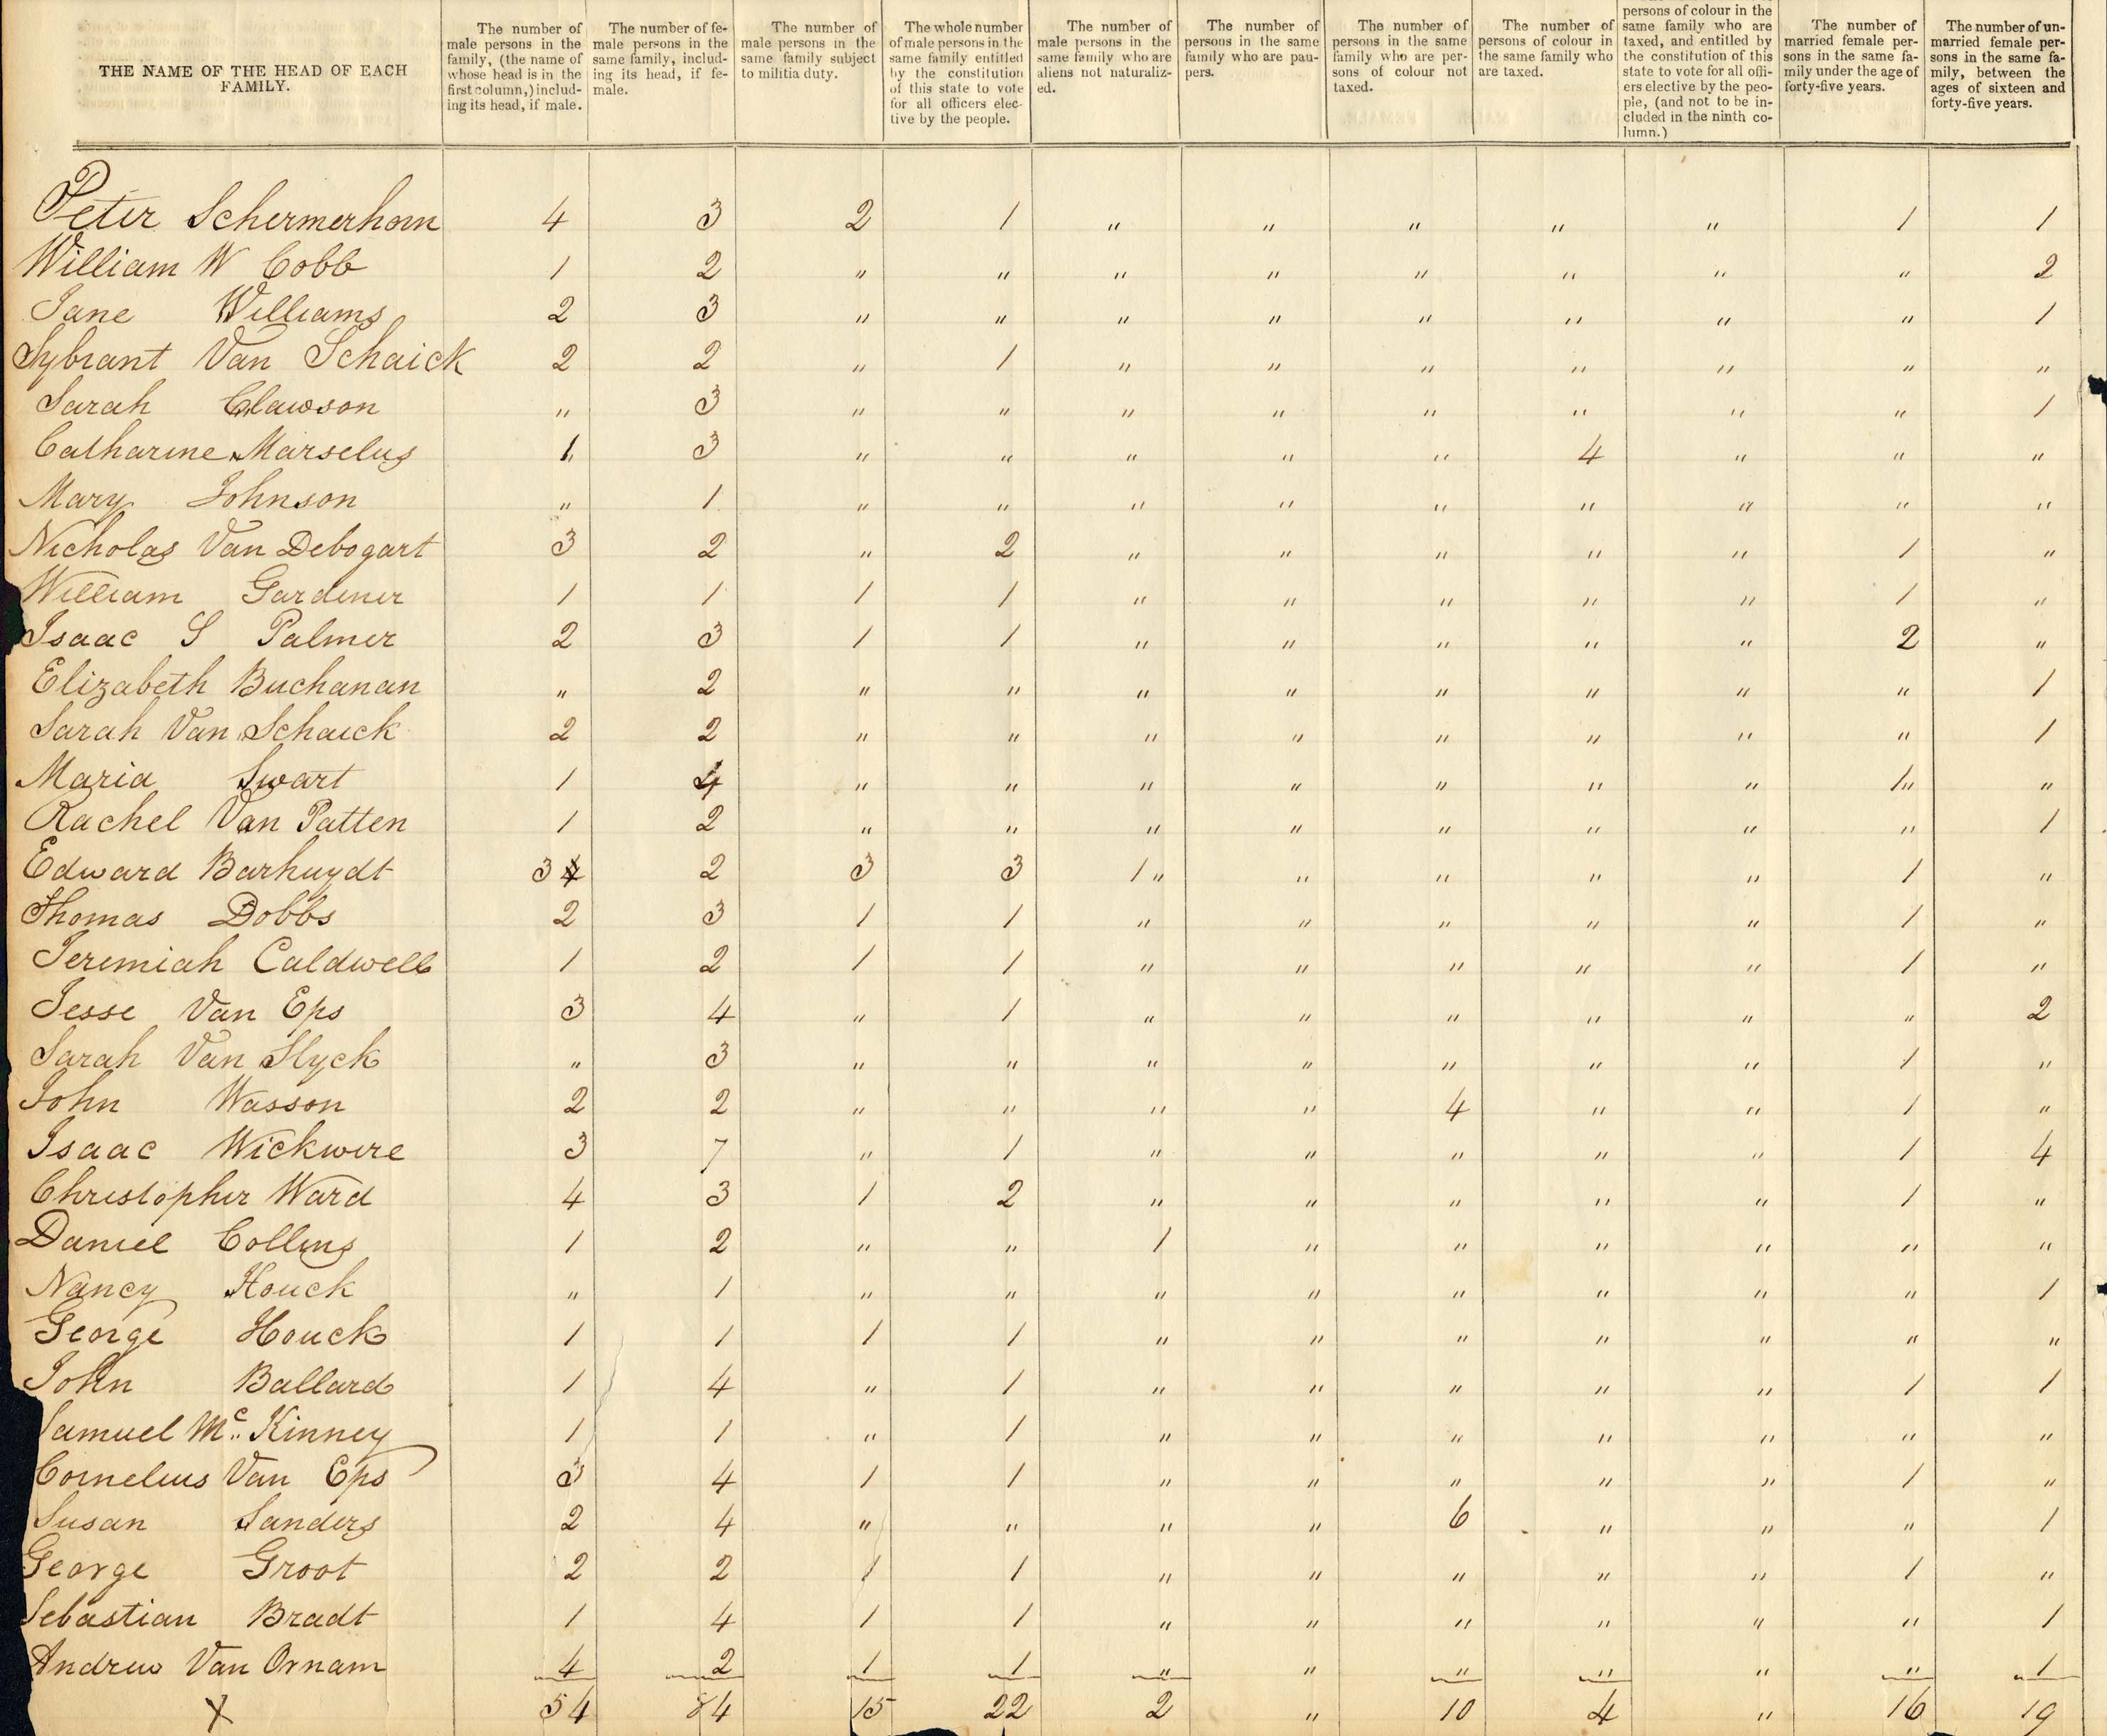 THE NAME OF THE HEAD OF EACH FAMILY. | The number of male persons in the family, (the name of whose head is in the first column,) including its head, if male. | The number of female persons in the same family, including its head, if female. | The number of male persons in the same family subject to militia duty. | The whole number of male persons in the same family entitled by the constitution of this state to vote for all officers elective by the people. | The number of male persons in the same family who are aliens not naturalized. | The number of persons in the same family who are paupers. | The number of persons in the same family who are persons of colour not taxed. | The number of persons of colour in the same family who are taxed. | persons of colour in the same family who are taxed, and entitled by the constitution of this state to vote for all officers elective by the people, (and not to be included in the ninth column.) | The number of married female persons in the same family under the age of forty-five years. | The number of unmarried female persons in the same family, between the ages of sixteen and forty-five years.
Peter Schermerhorn 4 3 2 1 " " " " " 1 1
William W Cobb 1 2 " " " " " " " " 2
Jane Williams 2 3 " " " " " " " " 1
Sybrant Van Schaick 2 2 " 1 " " " " " " "
Sarah Clawson " 3 " " " " " " " " 1
Catharine Marselus 1 3 " " " " " 4 " " "
Mary Johnson " 1 " " " " " " " " "
Nicholas Van Debogart 3 2 " 2 " " " " " 1 "
William Gardiner 1 1 1 1 " " " " " 1 "
Isaac S Palmer 2 3 1 1 " " " " " 2 "
Elizabeth Buchanan " 2 " " " " " " " " 1
Sarah Van Schaick 2 2 " " " " " " " " 1
Maria Swart 1 4 " " " " " " " 1" "
Rachel Van Patten 1 2 " " " " " " " " 1
Edward Barhuydt 3 4 2 3 3 1" " " " " 1 "
Thomas Dobbs 2 3 1 1 " " " " " 1 "
Jeremiah Caldwell 1 2 1 1 " " " " " 1 "
Jesse Van Eps 3 4 " 1 " " " " " " 2
Sarah Van Slyck " 3 " " " " " " " 1 "
John Wasson 2 2 " " " " 4 " " 1 "
Isaac Wickwire 3 7 " 1 " " " " " 1 4
Christopher Ward 4 3 1 2 " " " " " 1 "
Daniel Collins 1 2 " " 1 " " " " " "
Nancy Houck " 1 " " " " " " " " 1
George Houck 1 1 1 1 " " " " " " "
John Ballard 1 4 " 1 " " " " " 1 1
Samuel Mc Kinney 1 1 " 1 " " " " " " "
Cornelius Van Eps 3 4 1 1 " " " " " 1 "
Susan Sanders 2 4 " " " " 6 " " " 1
George Groot 2 2 1 1 " " " " " 1 "
Sebastian Bradt 1 4 1 1 " " " " " " 1
Andrew Van Ornam 4 2 1 1 " " " " " " 1
X 54 84 15 22 2 " 10 4 " 16 19